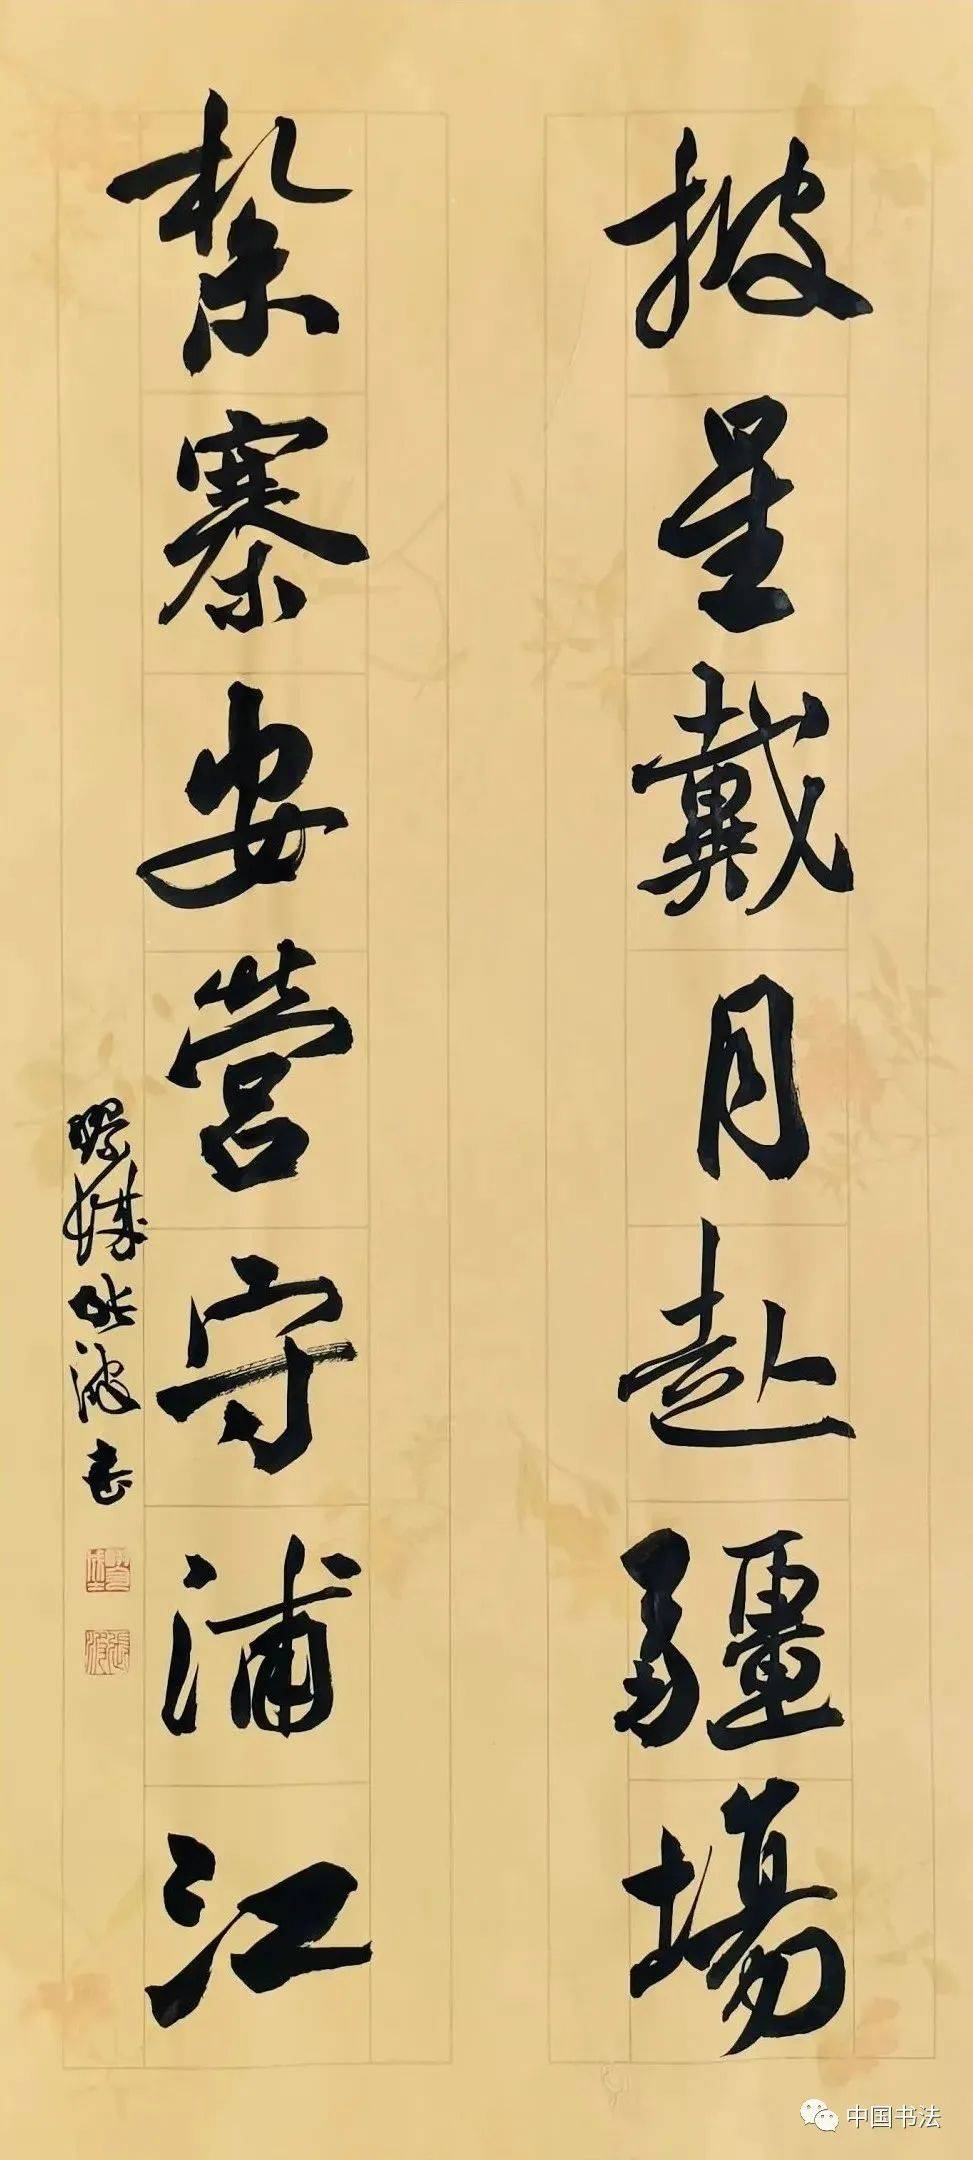 披星戴月赴疆場
紮寨安營守浦江
張波書
張波
中国书法